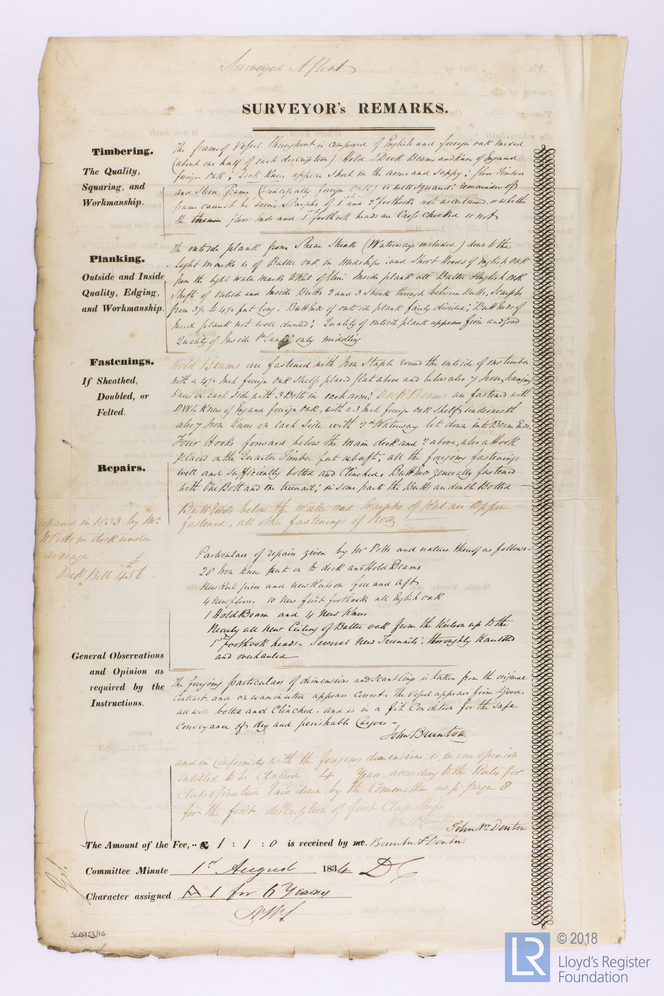 Surveyed Afloat
SURVEYOR's REMARKS.
Timbering.
The Quality,
Squaring, and
Workmanship.
The frame of Vessel throughout is composed of English and foreign oak mixed
(about one half of each description) Hold & Deck Beams and Knees of English and
foreign oak; Deck Knees appear short in the arms and sappy; floor Timbers
and Stem frame (principally foreign oak) is well squared; remainder of
frame cannot be seen; Scarphs of 1st and 2nd foothooks not ascertained, or whether
the floor ends and 1st foothook heads are Cross chocked or not
Planking.
Outside and Inside
Quality, Edging,
and Workmanship.
The outside plank from Shear Strake (Waterways included) down to the
Light marks is of Baltic oak in Midships and Short Hoods of English oak
from the light water marks to Keel of Elm; Inside plank all Baltic & English oak
Shift of outside and Inside Butts 2 and 3 Strakes through between Butts, Scarphs
from 3½ to 4½ feet long; Butt ends of outside plank fairly divided; Butt ends of
Inside plank not well divided; Quality of outside plank appears firm and good
Quality of Inside Plank only middling
Fastenings.
If Sheathed,
Doubled, or
Felted.
Hold Beams are fastened with Iron Staple round the outside of one timber
with a 4½ Inch foreign oak Shelf placed flat above and below also 7 Iron hanging
Knees on each side with 3 Bolts in each arm; Deck Beams are fastened with
Knees of English and foreign oak, with a 3 Inch foreign oak Shelf underneath
also 7 Iron Knees on each Side with Waterway let down into Beam Ends.
Four Hooks forward below the main deck and 2 above, also a Hook
placed on the Quarter Timber feet abaft; all the foregoing fastenings
well and sufficiently bolted and Clinched. Butt Ends generally fastened
with One Bolt and one treenail; in some parts the Butts are double Bolted
Butt Ends below the Wales and Scarphs of Keel are Copper
fastened, all other fastenings of Iron
Repairs.
Repaired in 1833 by Mr.
Potts in dock under
average
Dock Bill 456
Particulars of repair given by Mr Potts and nature thereof as follows-
28 Iron Knees put on to deck and Hold Beams
New Keel piece and new Kelson fore and aft
4 new floors 10 new first foothooks all English oak
1 Hold Beam and 4 New Knees
Nearly all new Ceiling of Baltic oak from the Kelson up to the
1st foothook heads- Several New Treenails; thoroughly Caulked
and overhauled
General Observations
and Opinion as
required by the
Instructions.
The foregoing particulars of dimension and Scantling is taken from the original
Contract and on examination appears Correct. The Vessel appears firm & good
and well bolted and Clinched; and is in a fit Condition for the safe
conveyance of dry and perishable Cargoes-
John Brunton
and in Conformity with the foregoing dimensions is in our opinion
entitled to be Classed 4 Years, according to the Rules for
Classification laid down by the Committee as p page 8
for the first description of first Class Ships
John Denton
The Amount of the Fee, £ 1 : 1 : 0 is received by me, Brunton & Denton
Committee Minute 1st August 1834
Character assigned A 1 for 6 Years
© 2018
LR
Lloyd's Register
Foundation